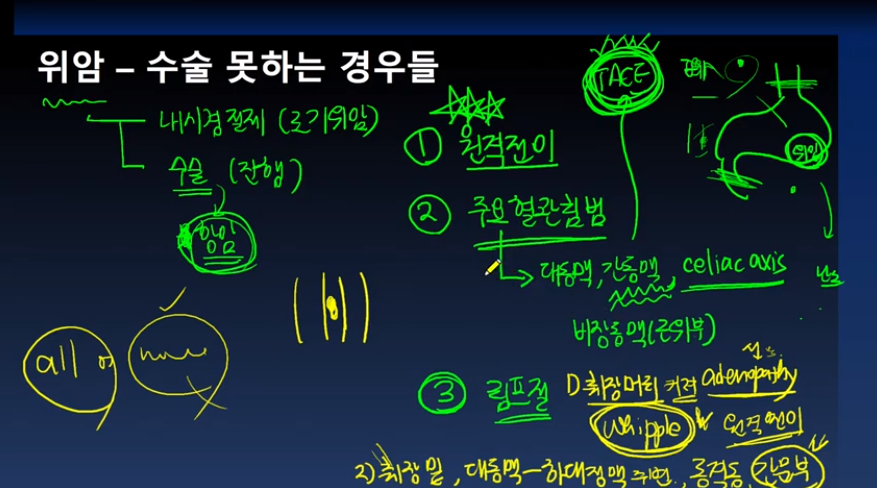 위암 – 수술 못하는 경우들
내시경절제 (조기위암)
수술 (진행)
항암
all or none
TACE
폐
위암
① 원격전이
② 주요혈관침범
대동맥, 간동맥, celiac axis
비장동맥(근위부)
③ 림프절
1) 췌장머리 커진 adenopathy
whipple
원격전이
2) 췌장 밑, 대동맥-하대정맥 주변, 종격동, 간문부